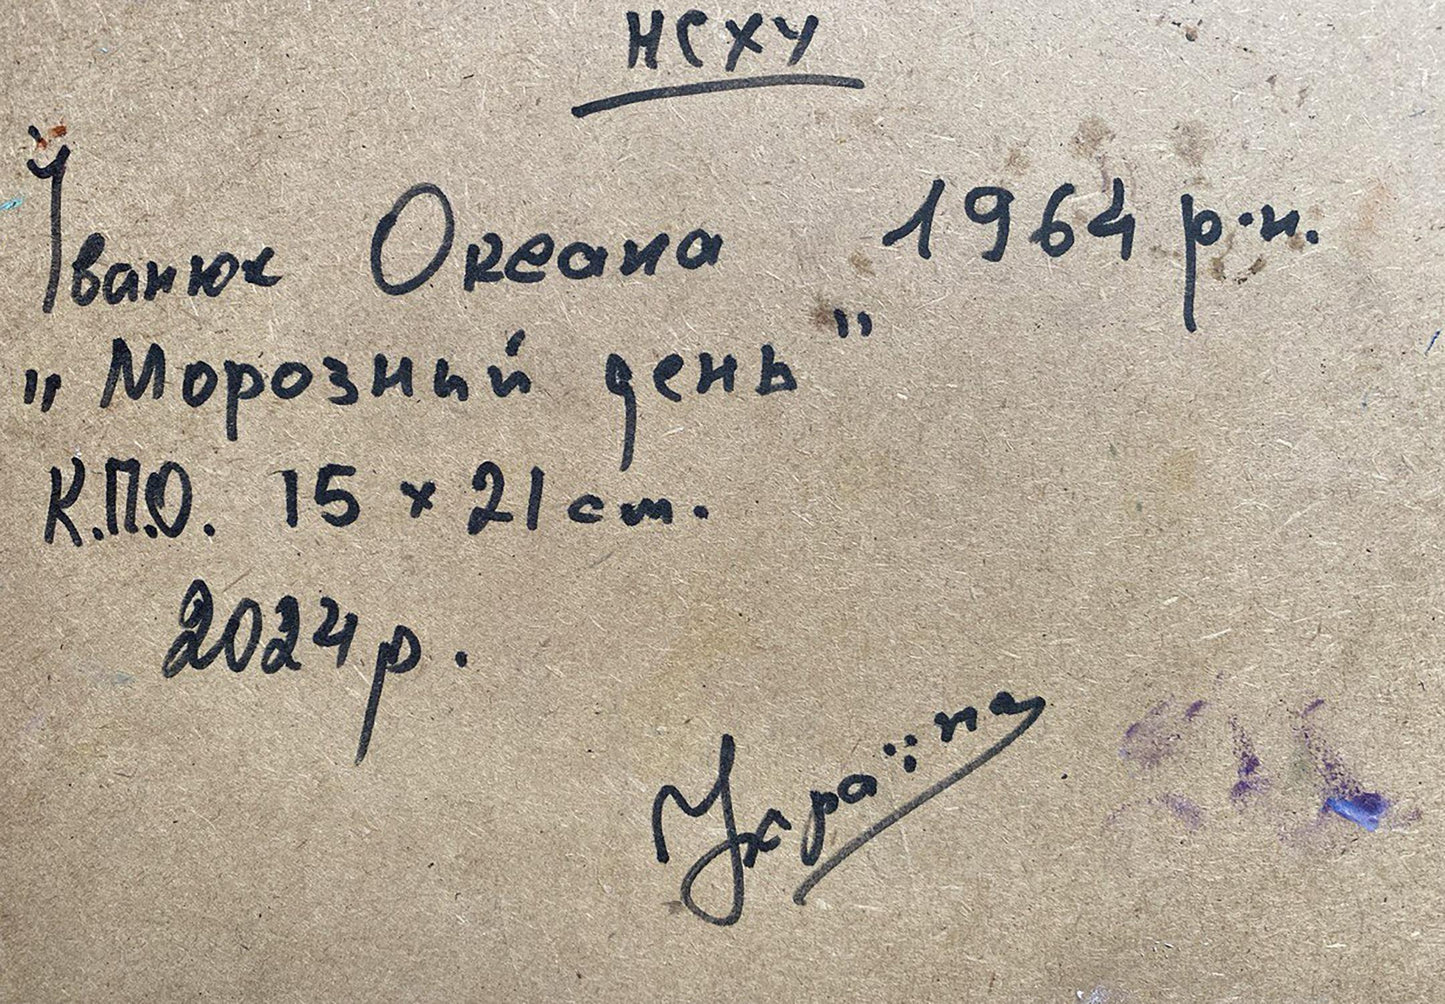 НСХУ
Іванюк Океана 1964 р.н.
„Морозный день"
К.П.О. 15 × 21 см.
2024 р.
Україна